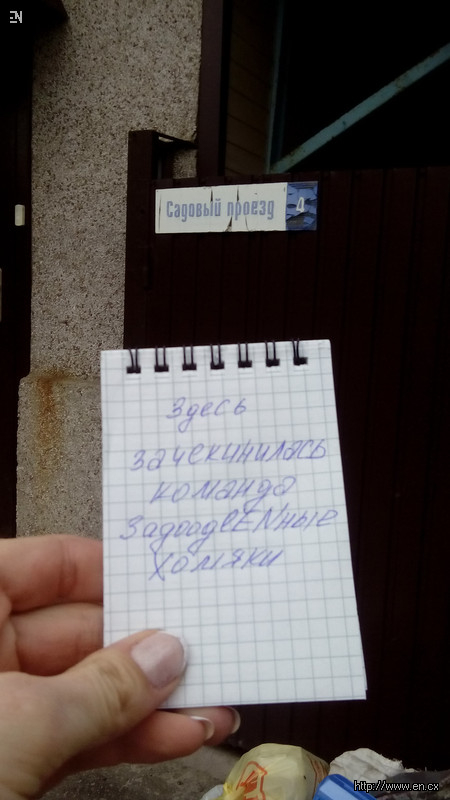 EN
Садовый проезд 4
Здесь
зачекинилась
команда
ЗадоодвENные
хомяки
http://www.en.cx